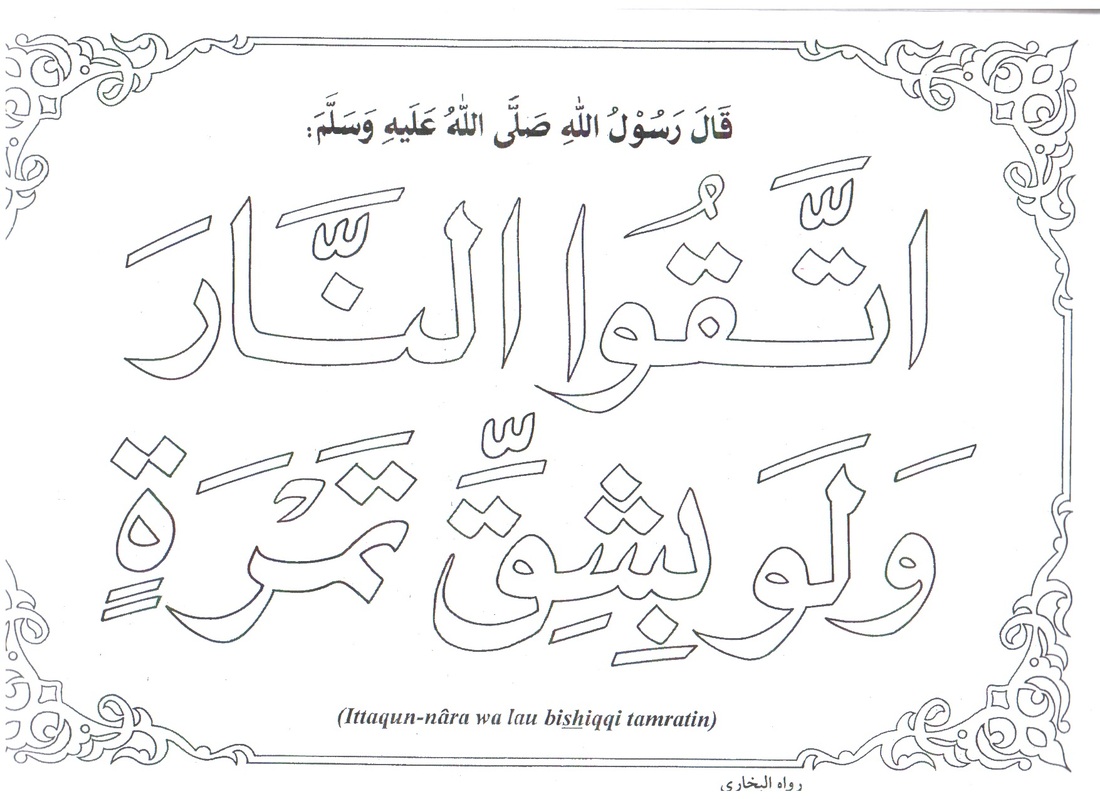 قَالَ رَسُوْلُ اللّٰهِ صَلَّى اللّٰهُ عَلَيهِ وَسَلَّمَ:
اتَّقُوا النَّارَ
وَلَو بِشِقِّ تَمْرَةٍ
(Ittaqun-nâra wa lau bishiqqi tamratin)
رواه البخاري